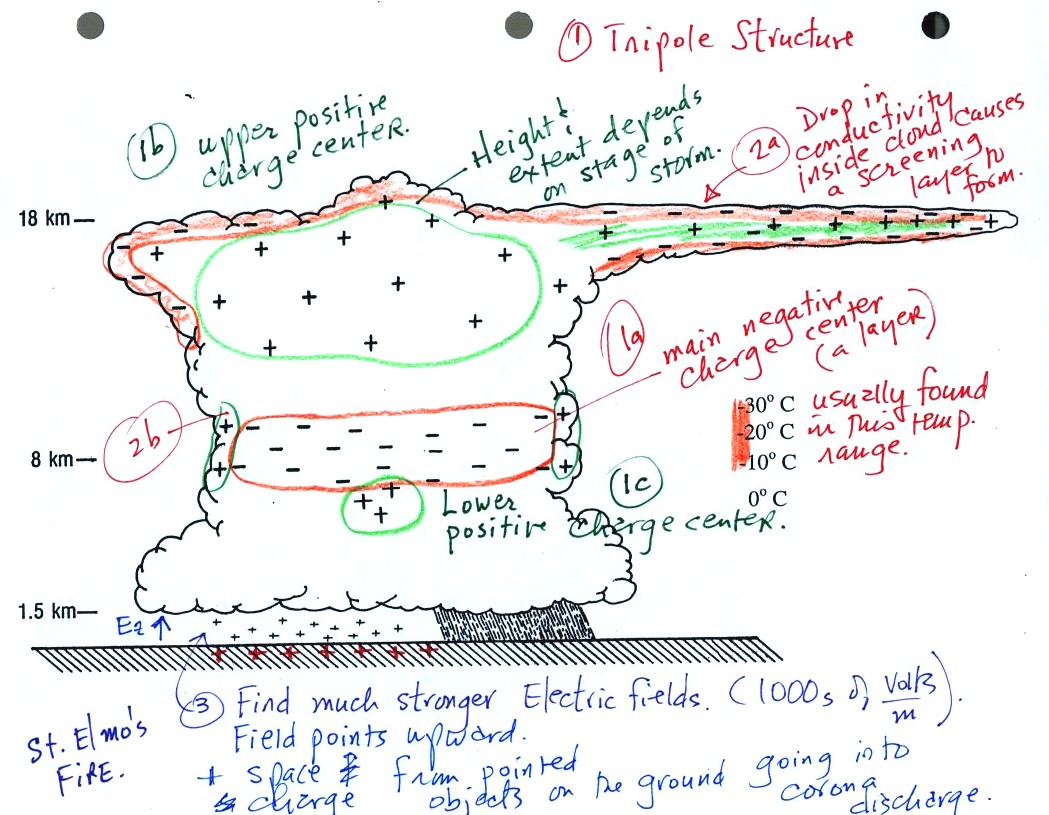 ① Tripole Structure
1b upper positive
charge center.
Height &
extent depends
on stage of
storm.
2a Drop in
conductivity
inside cloud causes
a screening
layer to
form.
18 km
1a main negative
charge center
(a layer)
2b
-30° C usually found
-20° C in this temp.
-10° C range.
0° C
8 km
1c
Lower
positive charge center.
1.5 km
Ez ↑
③ Find much stronger Electric fields. (1000s of Volts/m).
Field points upward.
+ space from pointed
charge objects on the ground going into
corona
discharge.
St. Elmo's
FIRE.